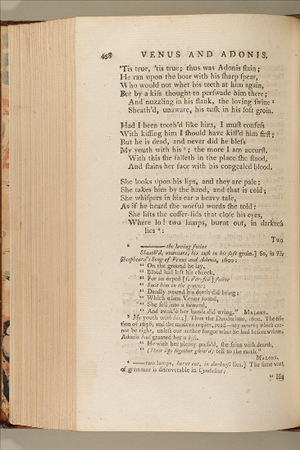 458 VENUS AND ADONIS.
'Tis true, 'tis true; thus was Adonis slain;
He ran upon the boar with his sharp spear,
Who would not whet his teeth at him again,
But by a kiss thought to persuade him there;
And nuzzling in his flank, the loving swine
Sheath'd, unaware, his tusk in his soft groin.
Had I been tooth'd like him, I must confess
With kissing him I should have kill'd him first;
But he is dead, and never did he bless
My youth with his; the more I am accurst.
With this she falleth in the place she stood,
And stains her face with his congealed blood.
She looks upon his lips, and they are pale;
She takes him by the hand, and that is cold;
She whispers in his ear a heavy tale,
As if he heard the woeful words she told:
She lifts the coffer-lids that close his eyes,
Where lo! two lamps, burnt out, in darkness
lies
Two
— the loving swine
Sheath'd, unaware, his tusk in his soft groin.] So, in The
Shepheard's Song of Venus and Adonis, 1600:
" On the ground he lay,
" Blood had left his cheek,
" For an orped swine
" Smit him in the groyne;
" Deadly wound his death did bring:
" Which when Venus found,
" She fell in a swound,
" And awak'd her hands did wring." MALONE.
My youth with his;] Thus the
tion of 1596, and the modern copies, read—my youth; which can-
not be right, unless our author forgot what he had before
Adonis had granted her a kiss.
" He with her plenty press'd, she faint with dearth,
(Their lips together glew'd) fell to the earth."
MALONE.
— two lamps, burnt out, in darkness lies.] The same sort
of grammar is discoverable in Cymbeline:
" His